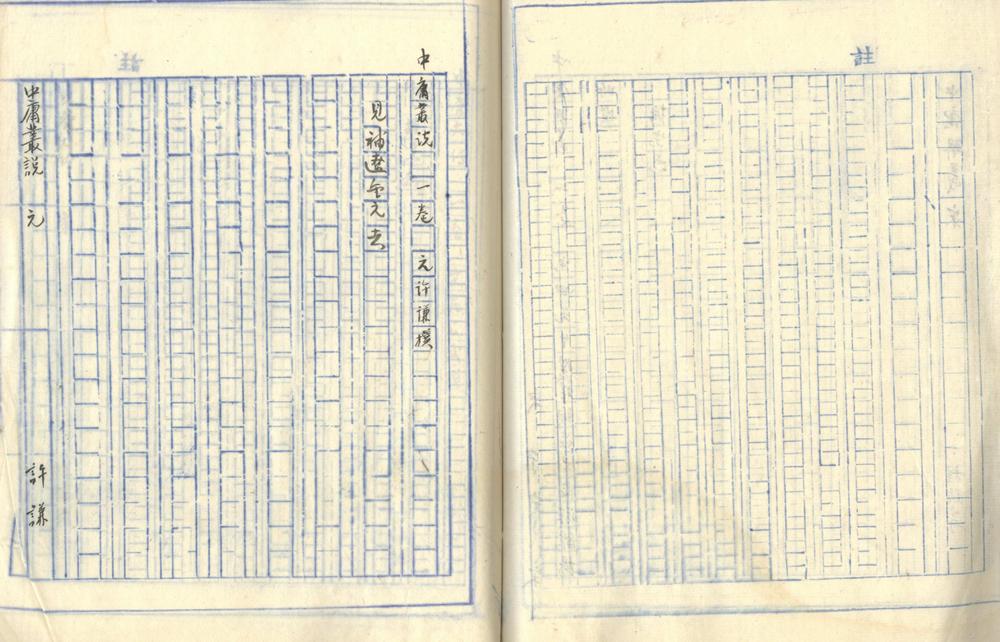 註
中庸叢説 一卷 元許謙撰
見補遼金元志
中庸叢説 元 許謙